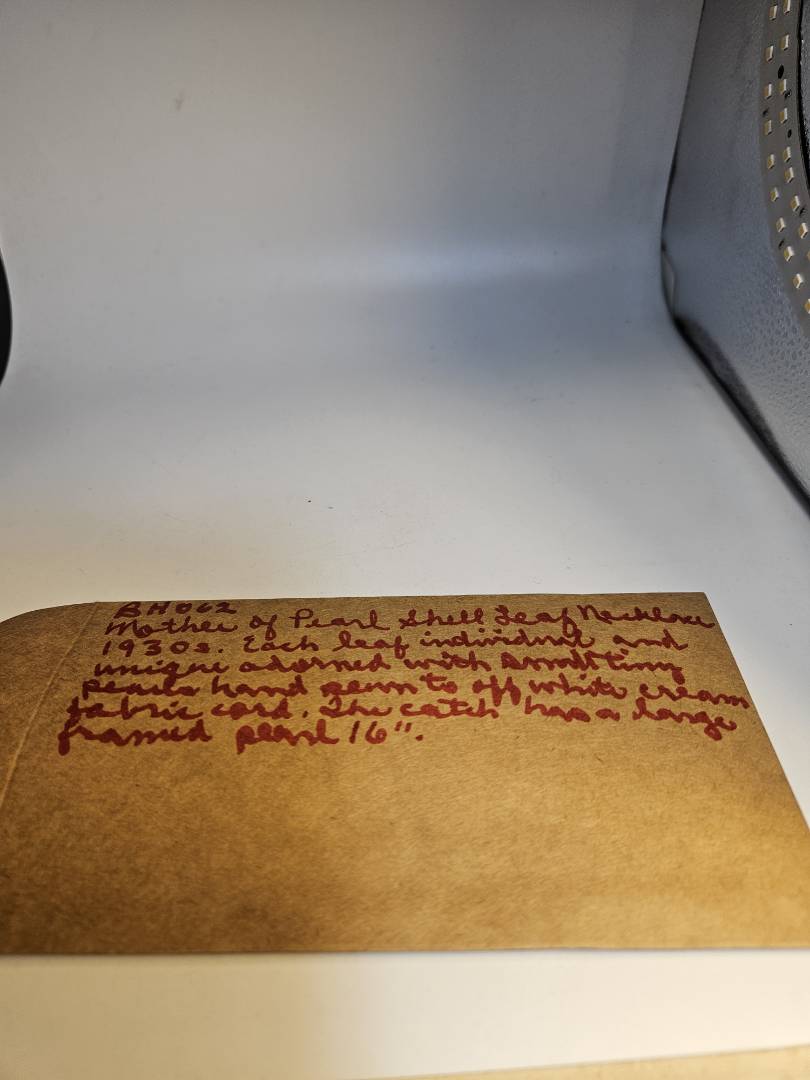 BH062
Mother of Pearl Shell Leaf Necklace
1930s. Each leaf individual and
unique adorned with small tiny
pearls hand sewn to off white cream
fabric cord. The catch has a large
framed pearl 16".